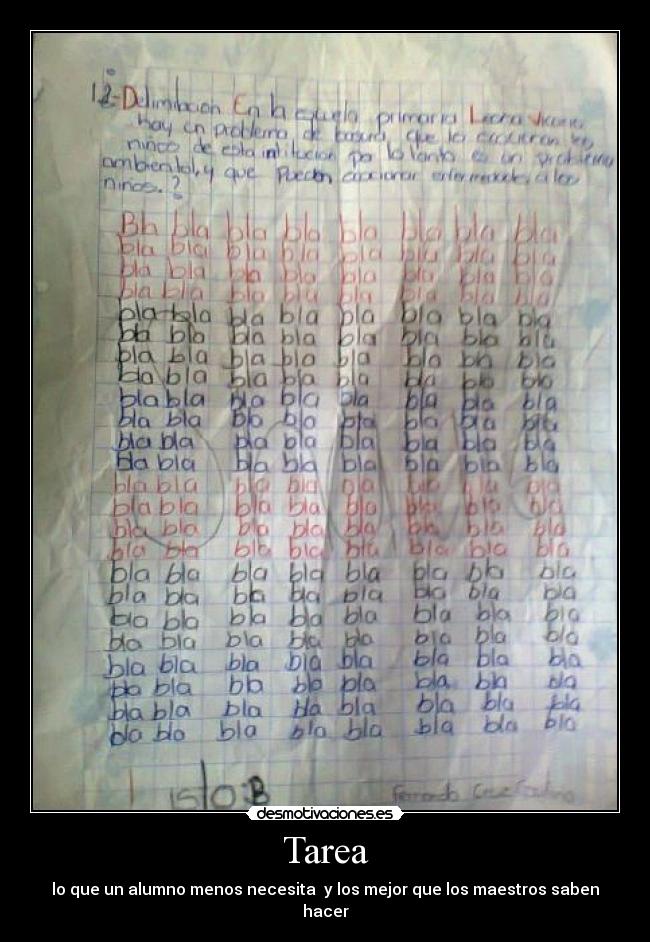 12-Delimitacion En la escuela primaria Leona Vicario
hay un problema de basura, que lo ocacionan los
niños de esta intitucion por lo tanto es un problema
ambiental, y que Pueden ocacionar enfermedades, a los
niños.?
Bla bla bla bla bla bla bla bla
bla bla bla bla bla bla bla bla
bla bla bla bla bla bla bla bla
bla bla bla bla bla bla bla bla
bla bla bla bla bla bla bla bla
bla bla bla bla bla bla bla bla
bla bla bla bla bla bla bla bla
bla bla bla bla bla bla bla bla
bla bla bla bla bla bla bla bla
bla bla bla bla bla bla bla bla
bla bla bla bla bla bla bla bla
bla bla bla bla bla bla bla bla
bla bla bla bla bla bla bla bla
bla bla bla bla bla bla bla bla
bla bla bla bla bla bla bla bla
bla bla bla bla bla bla bla bla
bla bla bla bla bla bla bla bla
bla bla bla bla bla bla bla bla
bla bla bla bla bla bla bla bla
bla bla bla bla bla bla bla bla
bla bla bla bla bla bla bla bla
bla bla bla bla bla bla bla bla
bla bla bla bla bla bla bla bla
bla bla bla bla bla bla bla bla
Fernando Cruz
desmotivaciones.es
Tarea
lo que un alumno menos necesita y los mejor que los maestros saben
hacer